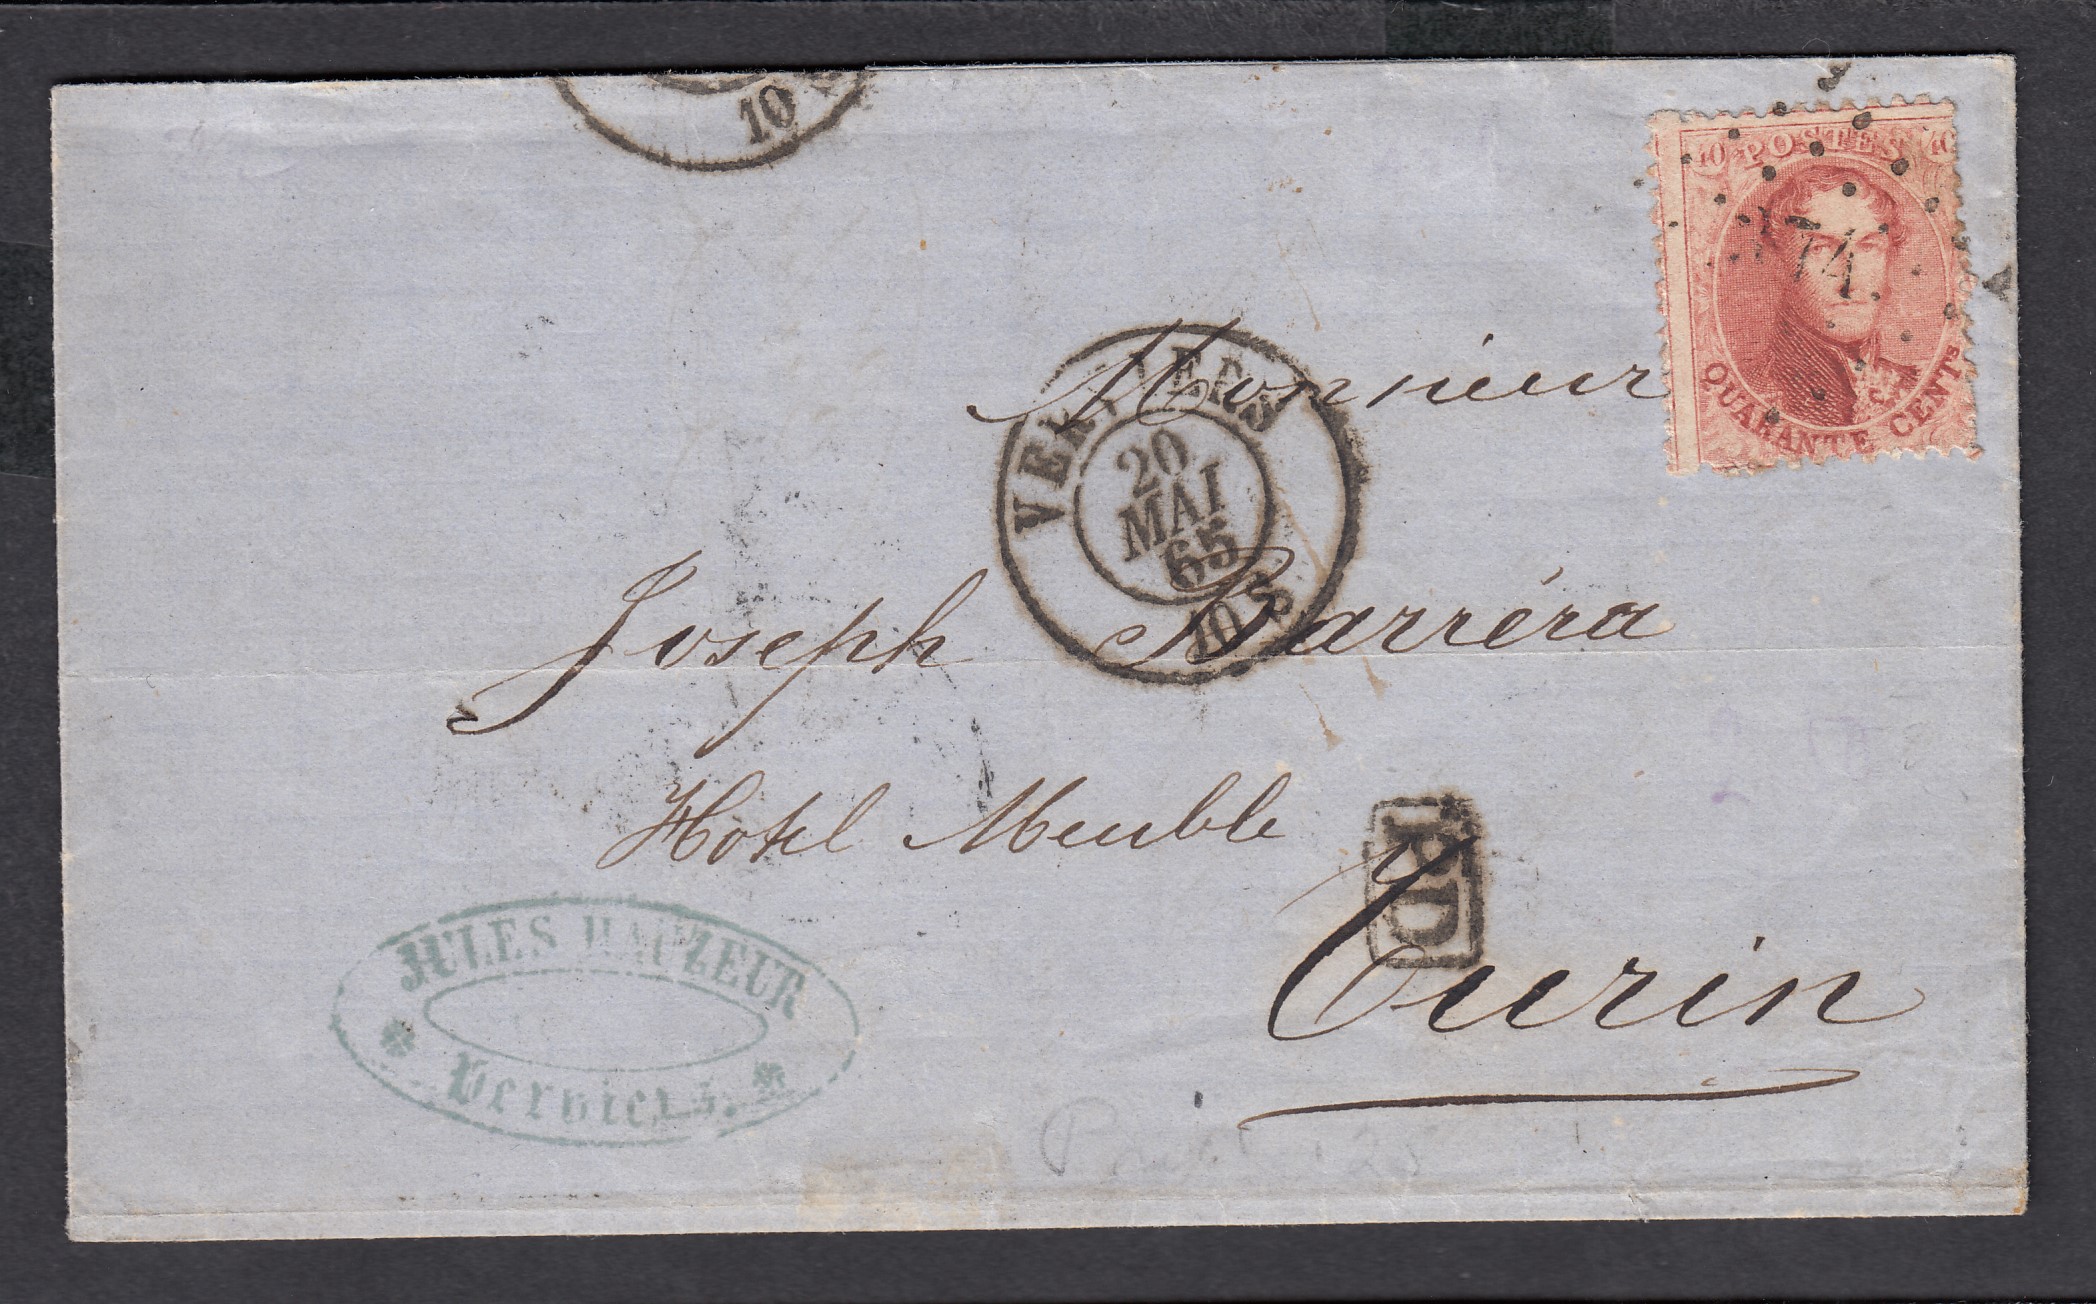 10
10 POSTES 40
374
QUARANTE CENTS
VERVIERS
20
MAI
65
10 S
Monsieur
Joseph Barréra
Hôtel Meuble
PD
Turin
JULES HAUZEUR
Verviers.